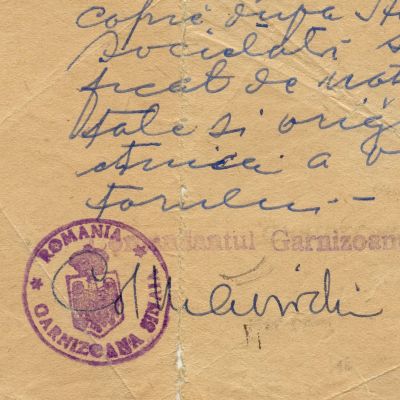 copie după
Societății
ficat de
tale și orig
etnică a
torului. -
Comandantul Garnizoan
ROMANIA
GARNIZOANA SIBIU